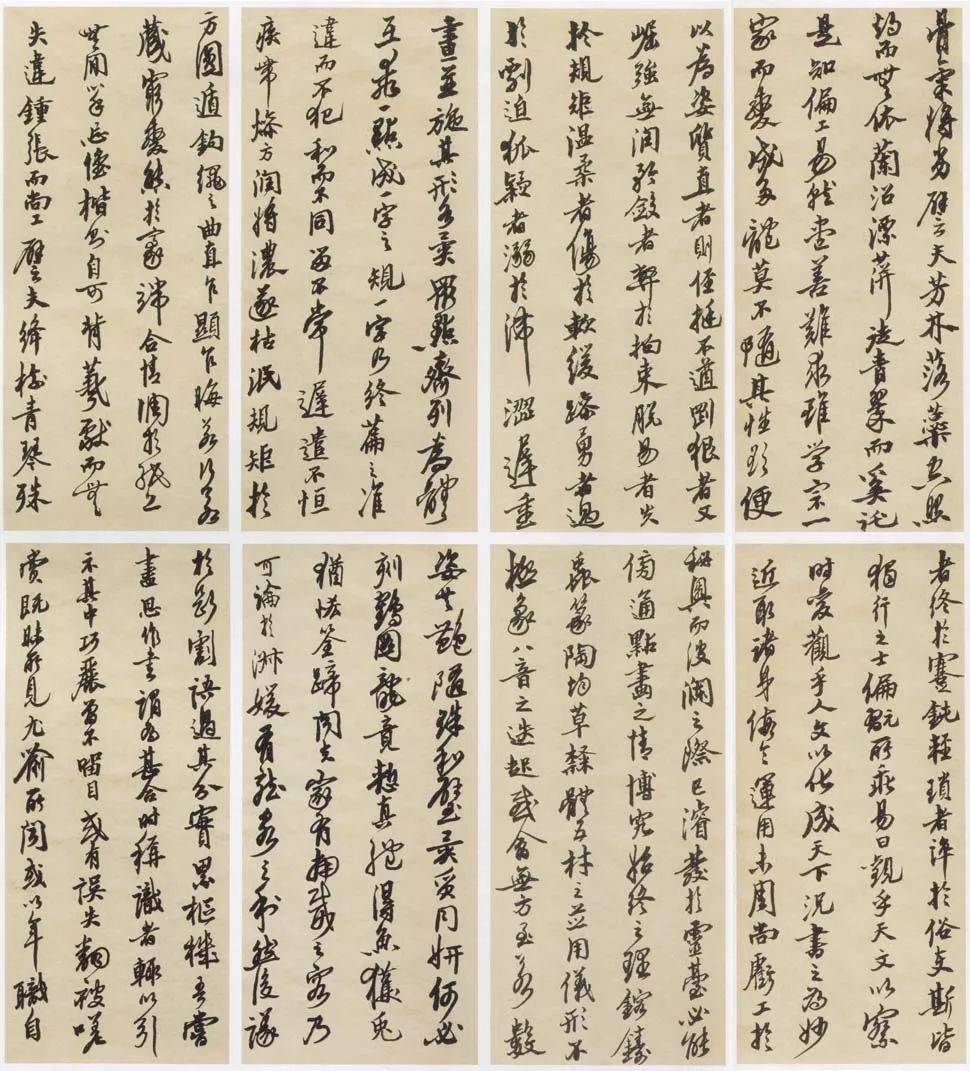 骨氣將劣譬夫芳林落蘂空照
灼而無依蘭沼漂萍徒青翠而奚託
是知偏工易就盡善難求雖学宗一
家而變成多體莫不隨其性欲便
以為姿質直者則俓侹不遒剛狠者又
崛強無潤矜斂者弊於拘束脱易者失
於規矩温柔者傷於軟緩躁勇者過
於剽迫狐疑者溺於滯澀遲重
者終於蹇鈍輕瑣者淬於俗吏斯皆
獨行之士偏翫所乖易曰觀乎天文以察
時變觀乎人文以化成天下況書之為妙
近取諸身假令運用未周尚虧工於
秘奧而波瀾之際已濬發於靈臺必能
傍通點畫之情博究始終之理鎔鑄
蟲篆陶均草隸體五材之並用儀形不
極象八音之迭起感會無方至若數
畫並施其形各異眾點齊列為體
互乖一點成一字之規一字乃終篇之准
違而不犯和而不同留不常遲遣不恒
疾帶燥方潤將濃遂枯泯規矩於
方圓遁鈎繩之曲直乍顯乍晦若行若
藏窮變態於豪端合情調於紙上
無間心手忘懷楷則自可背羲獻而無
失違鍾張而尚工譬夫絳樹青琴殊
姿共艷隋珠和璧異質同妍何必
刻鶴圖龍竟慙真體得魚獲兔
猶恡筌蹄聞夫家有南威之容乃
可論於淑媛有龍泉之利然後議
於斷割語過其分實累樞機吾嘗
盡思作書謂為甚合時稱識者輒以引
示其中巧麗曾不留目或有誤失翻被嗟
賞既昧所見尤喻所聞或以年職自